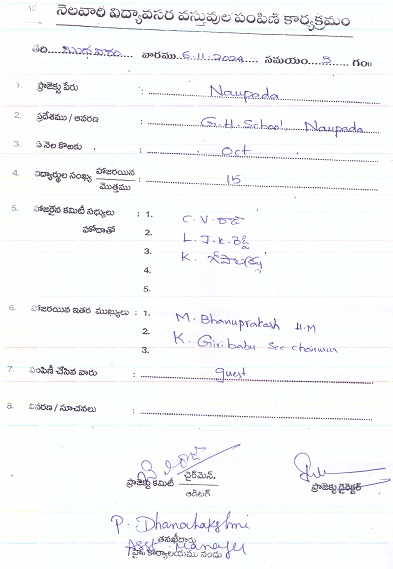 నెలవారి విద్యావసర వస్తువుల పంపిణి కార్యక్రమం
తేది బుధవారం వారము 6.11.2024 సమయం 9 గం॥
1. ప్రాజెక్టు పేరు : Naupada
2. ప్రదేశము / ఆవరణ : G.H. School, Naupada
3. ఏ నెల కొఱకు : Oct
4. విద్యార్థుల సంఖ్య హాజరయిన / మొత్తము : 15
5. హాజరైన కమిటీ సభ్యులు : 1. C. V. రాజ్
హోదాతో 2. L. J. K. రెడ్డి
3. K. గోపాలకృష్ణ
4.
5.
6. హాజరయిన ఇతర ముఖ్యులు : 1. M. Bhanuprakash H.M
2. K. Giribabu Sec chairman
3.
7. పంపిణీ చేసిన వారు : guest
8. వివరణ / సూచనలు :
ప్రాజెక్టు కమిటీ చైర్‌మెన్. / ఆడిటర్ ప్రాజెక్టు డైరెక్టర్
P. Dhanalakshmi
తనఖీదారు
Asst. Manager
హైస్ కార్యాలయము నందు